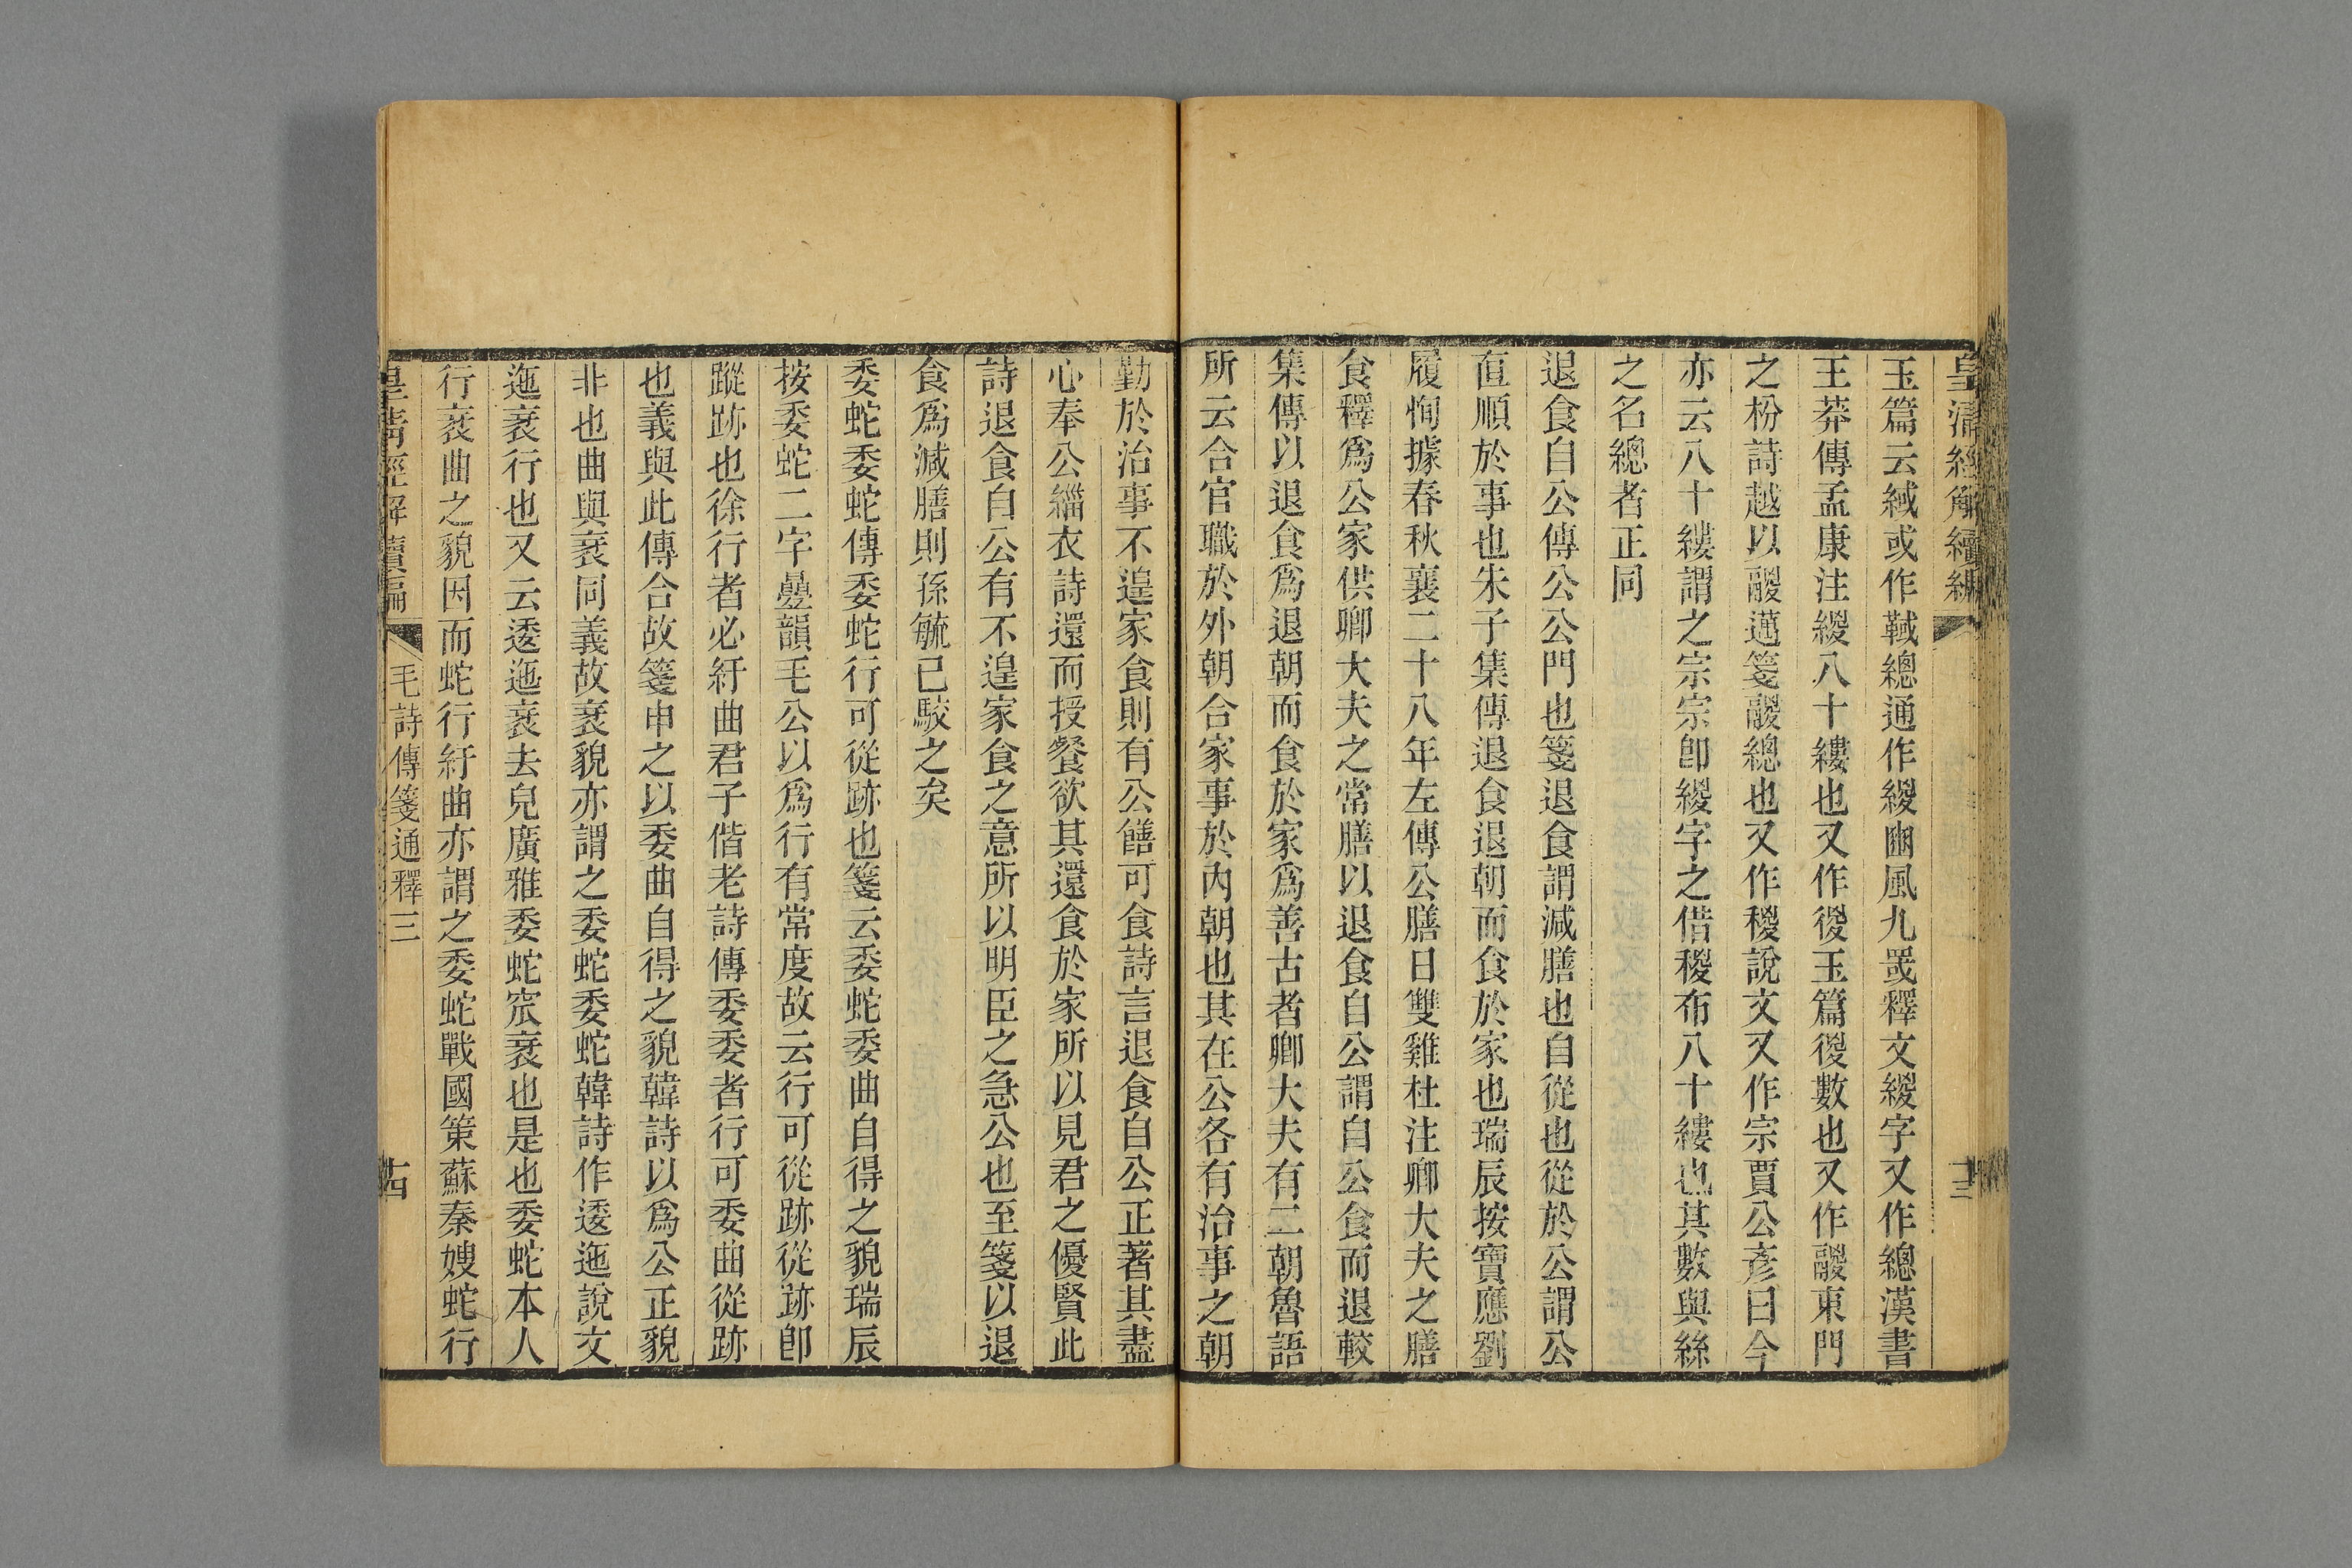 皇清經解續編
十三
玉篇云緎或作䩹總通作緵豳風九罭釋文緵字又作總漢書
王莽傳孟康注緵八十縷也又作㣭玉篇㣭數也又作鬷東門
之枌詩越以鬷邁箋鬷總也又作稯說文又作宗賈公彥曰今
亦云八十縷謂之宗宗卽緵字之借稯布八十縷也其數與絲
之名總者正同
退食自公傳公公門也箋退食謂減膳也自從也從於公謂公
直順於事也朱子集傳退食退朝而食於家也瑞辰按寶應劉
履恂據春秋襄二十八年左傳公膳日雙雞杜注卿大夫之膳
食釋爲公家供卿大夫之常膳以退食自公謂自公食而退較
集傳以退食爲退朝而食於家爲善古者卿大夫有二朝魯語
所云合官職於外朝合家事於內朝也其在公各有治事之朝
勤於治事不遑家食則有公饍可食詩言退食自公正著其盡
心奉公緇衣詩還而授餐欲其還食於家所以見君之優賢此
詩退食自公有不遑家食之意所以明臣之急公也至箋以退
食爲減膳則孫毓已駁之矣
委蛇委蛇傳委蛇行可從跡也箋云委蛇委曲自得之貌瑞辰
按委蛇二字疊韻毛公以爲行有常度故云行可從跡從跡卽
蹤跡也徐行者必紆曲君子偕老詩傳委委者行可委曲從跡
也義與此傳合故箋申之以委曲自得之貌韓詩以爲公正貌
非也曲與衺同義故衺貌亦謂之委蛇委蛇韓詩作逶迤說文
迤衺行也又云逶迤衺去皃廣雅委蛇窊衺也是也委蛇本人
行衺曲之貌因而蛇行紆曲亦謂之委蛇戰國策蘇秦嫂蛇行
皇淸經解續編
毛詩傳箋通釋三
十四